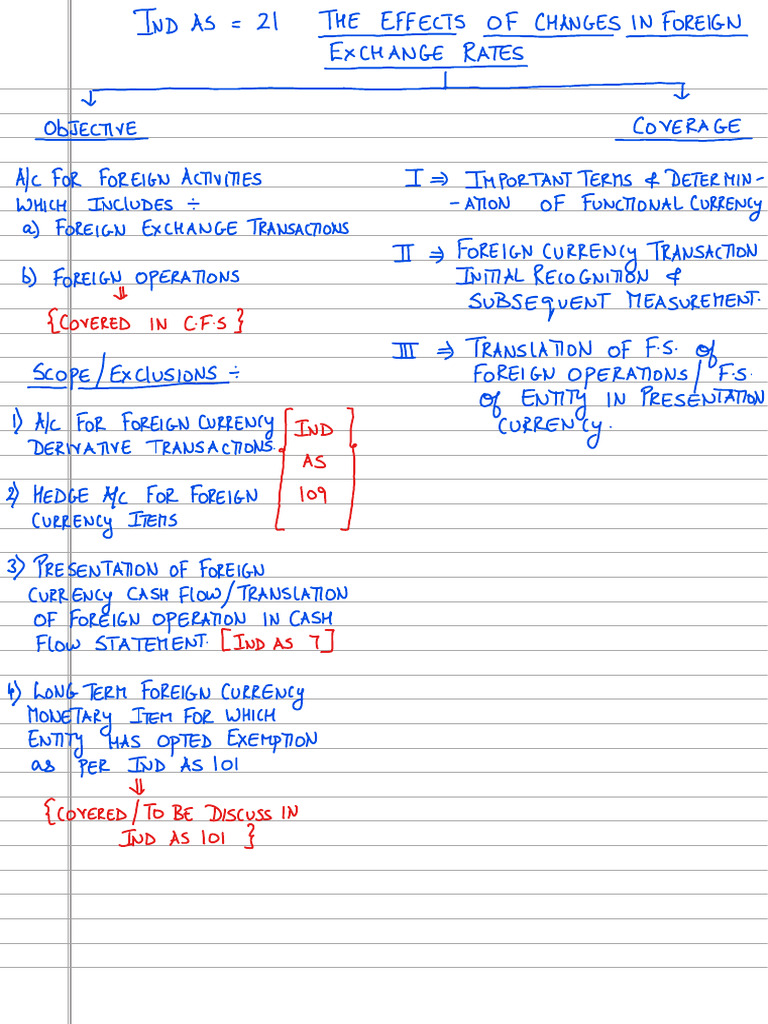 IND AS = 21 THE EFFECTS OF CHANGES IN FOREIGN
EXCHANGE RATES
OBJECTIVE
A/C FOR FOREIGN ACTIVITIES
WHICH INCLUDES ÷
a) FOREIGN EXCHANGE TRANSACTIONS
b) FOREIGN OPERATIONS
⇓
{COVERED IN C.F.S}
SCOPE/EXCLUSIONS ÷
1) A/C FOR FOREIGN CURRENCY
DERIVATIVE TRANSACTIONS.
2) HEDGE A/C FOR FOREIGN
CURRENCY ITEMS
[IND
AS
109]
3) PRESENTATION OF FOREIGN
CURRENCY CASH FLOW/TRANSLATION
OF FOREIGN OPERATION IN CASH
FLOW STATEMENT. [IND AS 7]
4) LONG TERM FOREIGN CURRENCY
MONETARY ITEM FOR WHICH
ENTITY HAS OPTED EXEMPTION
as PER IND AS 101
⇓
{COVERED/TO BE DISCUSS IN
IND AS 101 }
COVERAGE
I ⇒ IMPORTANT TERMS & DETERMIN-
-ATION OF FUNCTIONAL CURRENCY
II ⇒ FOREIGN CURRENCY TRANSACTION
INITIAL RECOGNITION &
SUBSEQUENT MEASUREMENT.
III ⇒ TRANSLATION OF F.S. of
FOREIGN OPERATIONS/F.S.
of ENTITY IN PRESENTATION
CURRENCY.